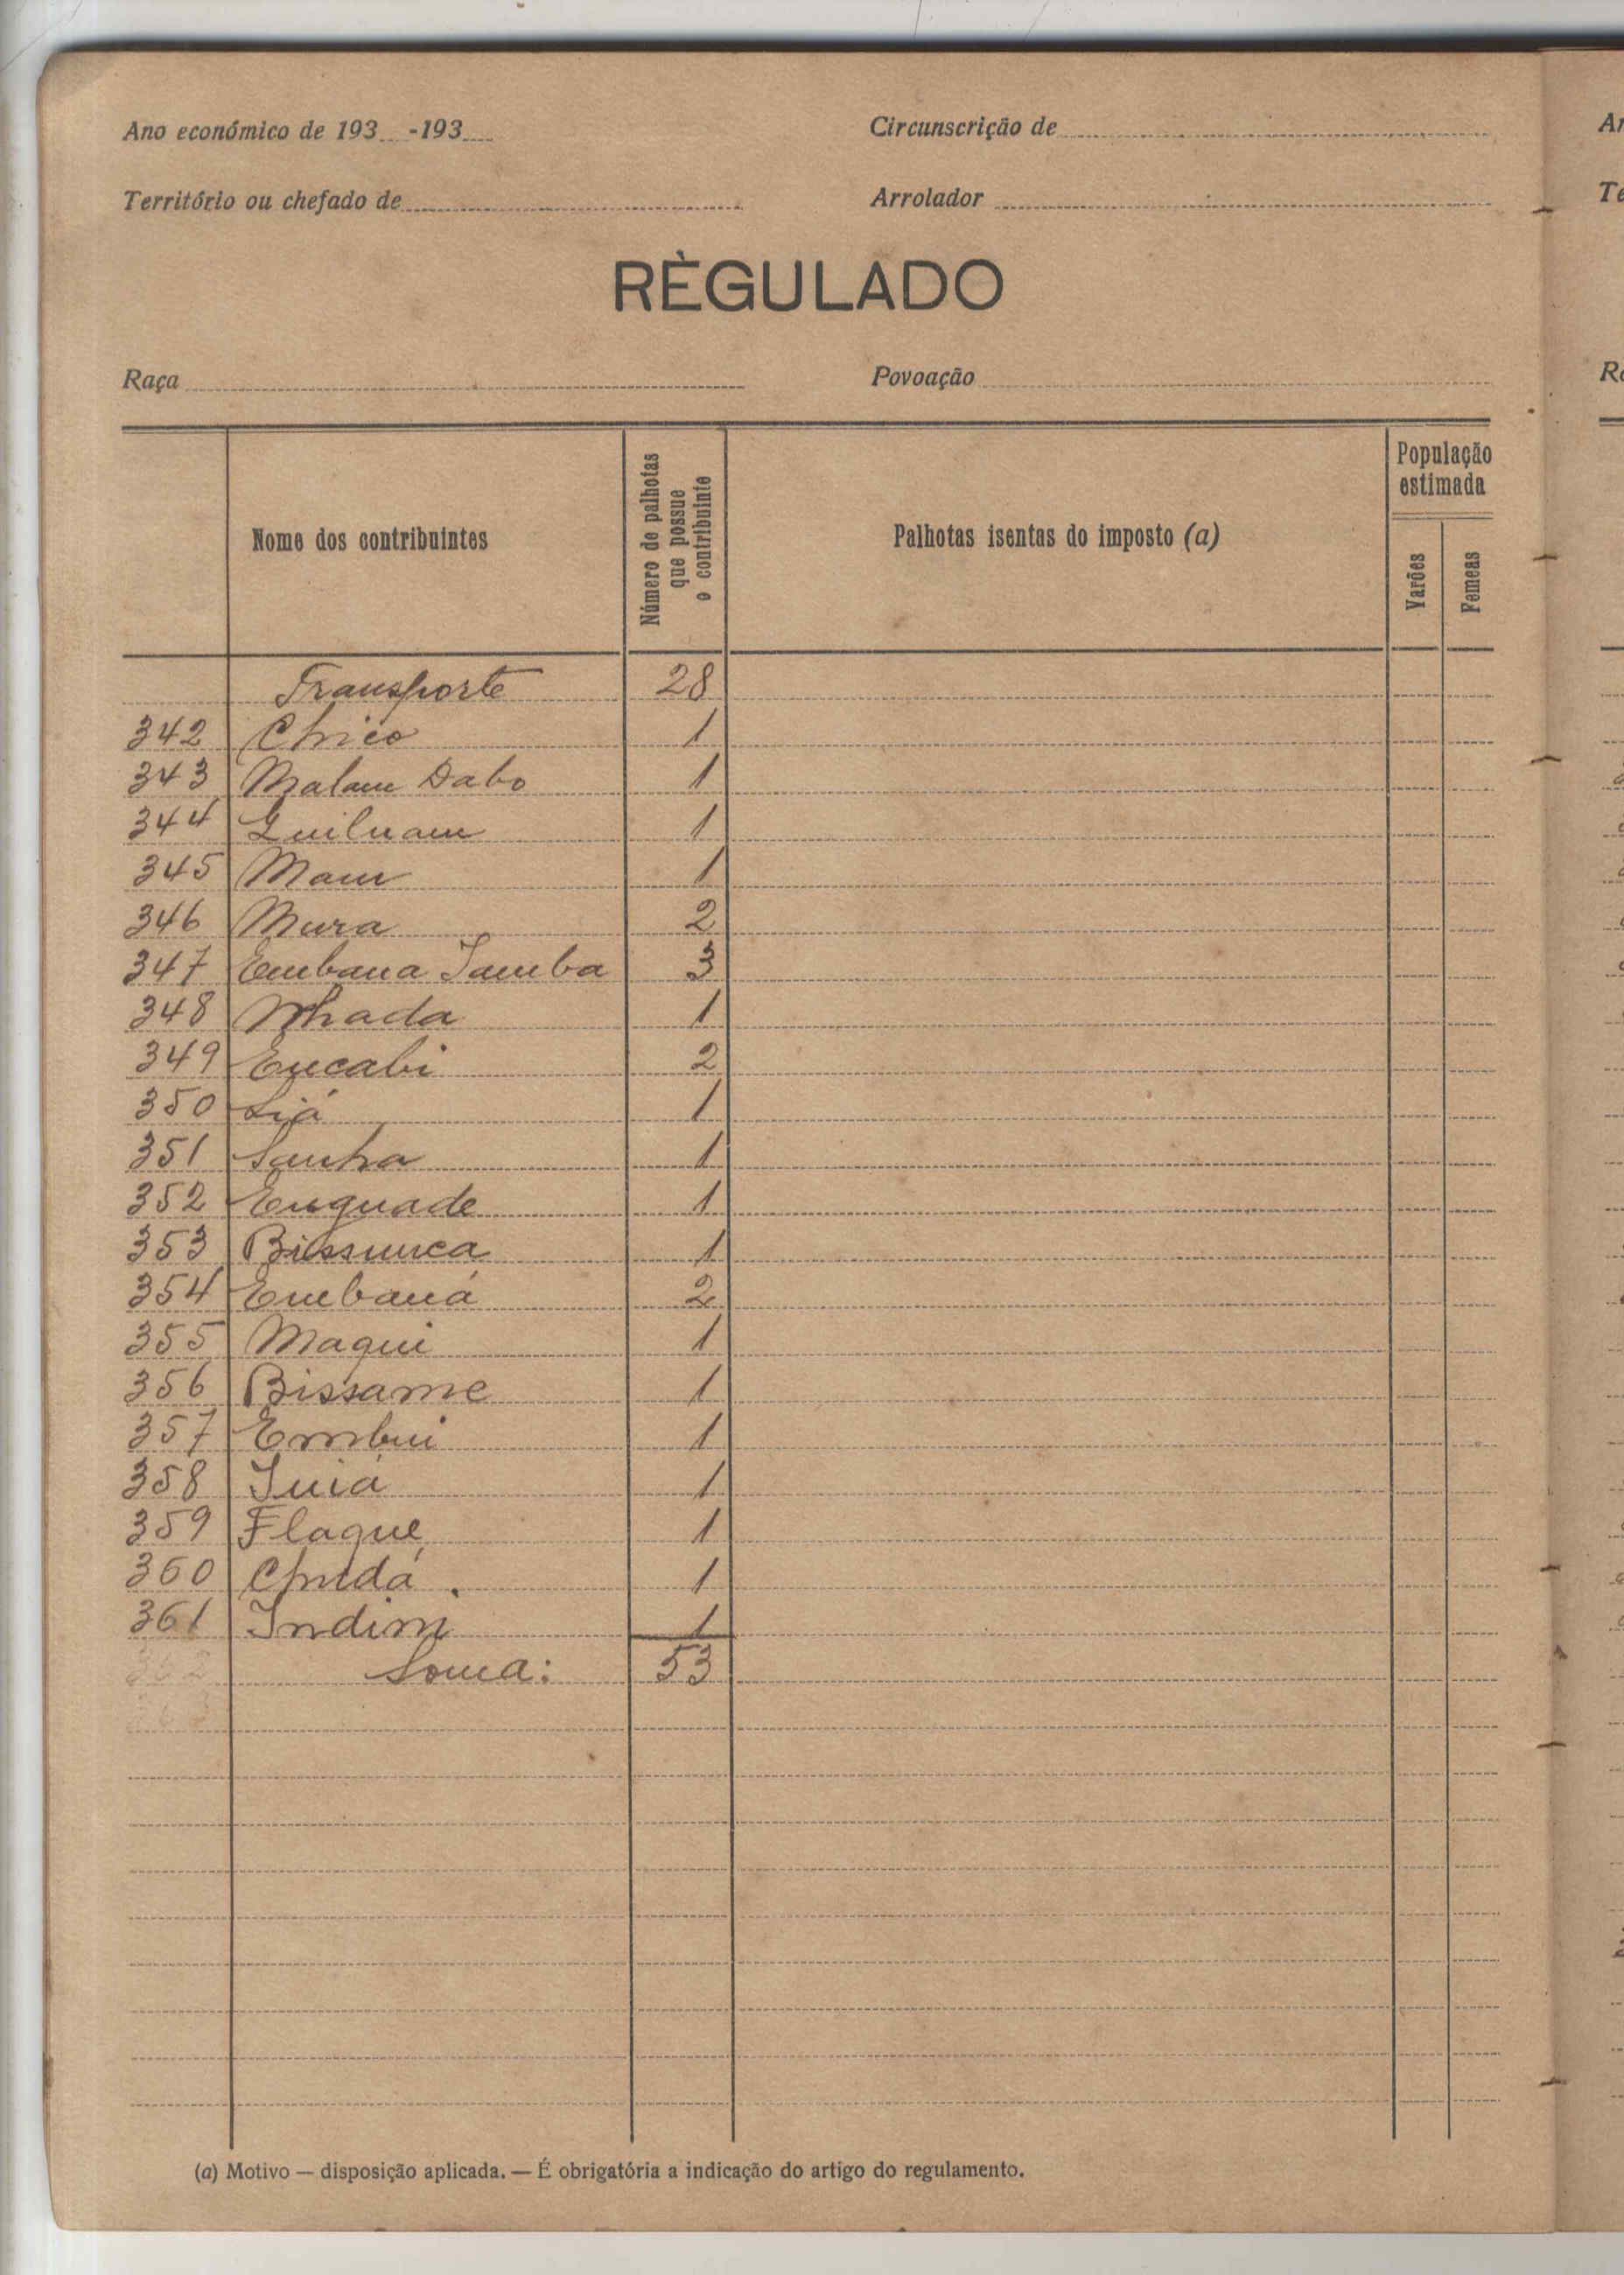 Ano económico de 193 -193
Circunscrição de
Território ou chefado de
Arrolador
RÈGULADO
Raça
Povoação
Nome dos contribuintes
Número de palhotas que possue o contribuinte
Palhotas isentas do imposto (a)
População estimada
Varões
Femeas
Transporte 28
342 Chico 1
343 Malam Dabo 1
344 1
345 Mam 1
346 Mura 2
347 Embana Jamba 3
348 Nhada 1
349 Encabi 2
350 1
351 Sanha 1
352 Enguade 1
353 Bissunca 1
354 Embaná 2
355 Maqui 1
356 Bissame 1
357 Embui 1
358 1
359 Flaque 1
360 Chudá 1
361 Indim 1
362 Soma: 53
(a) Motivo — disposição aplicada. — É obrigatória a indicação do artigo do regulamento.